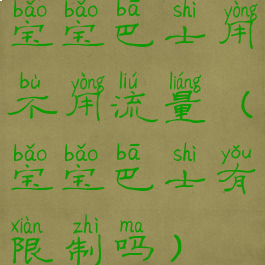 bǎo bǎo bā shì yòng
宝宝巴士用
bù yòng liú liáng
不用流量（
bǎo bǎo bā shì yǒu
宝宝巴士有
xiàn zhì ma
限制吗）